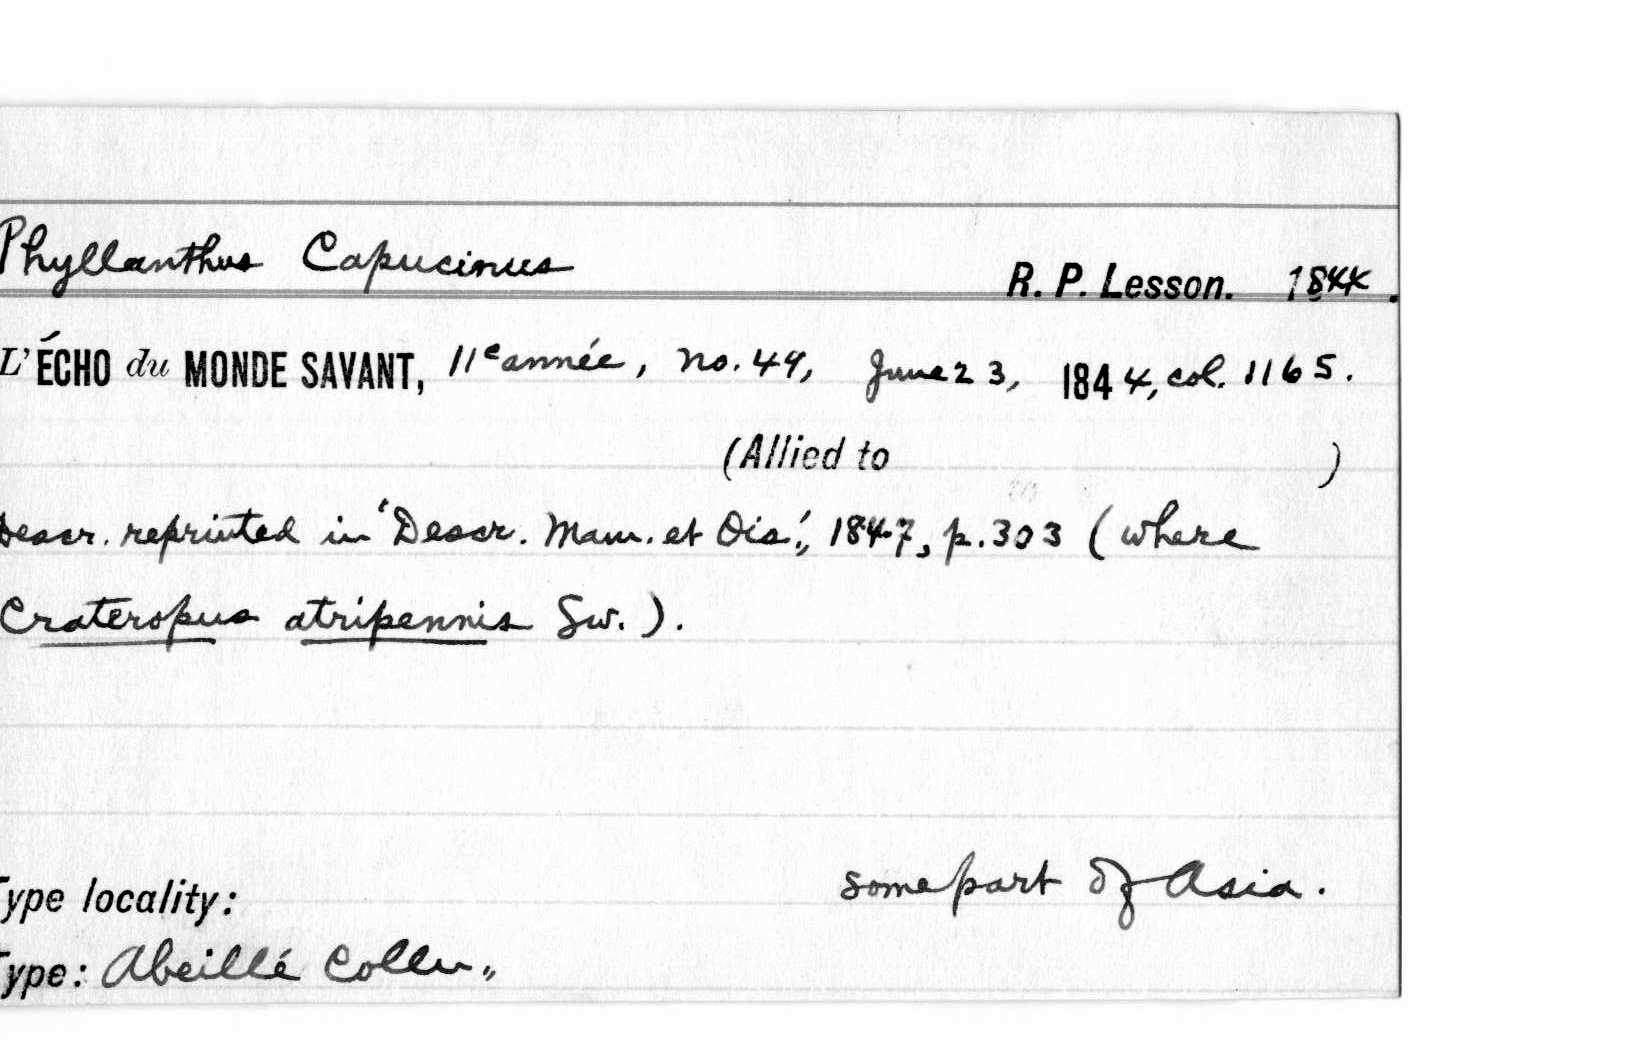 Phyllanthus Capucinus
R. P. Lesson. 1844.
L'ÉCHO du MONDE SAVANT, 11e année, no. 49, June 23, 1844, col. 1165.
(Allied to )
Descr. reprinted in 'Descr. Mam. et Ois.', 1847, p. 303 (where
Crateropus atripennis Sw.).
Type locality: some part of Asia.
Type: Abeillé Colln.